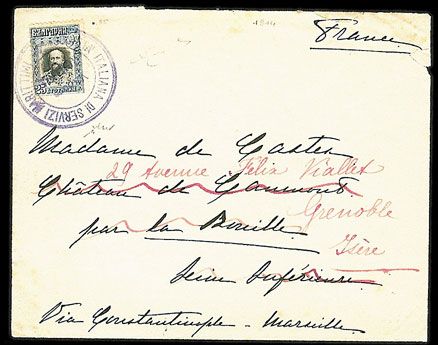 France
БЪЛГАРИЯ
25 СТОТИНКИ 25
ITALIANA DI SERVIZI MARITTIMI
Madame de Castex
29 Avenue Félix Viallet
Château de Caumont
Grenoble
par la Bouille
Isère
Seine Inférieure
Via Constantinople - Marseille